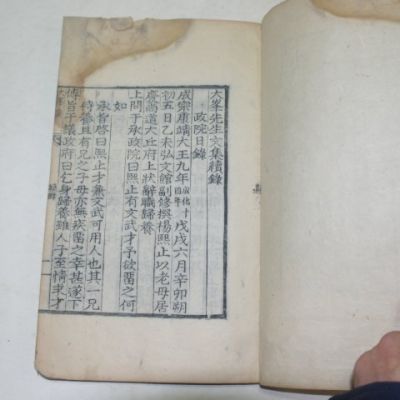 大峯先生文集續錄
政院日錄
成宗康靖大王九年成化十四年戊戌六月辛卯朔
初五日乙未弘文館副修撰楊熙止以老母居
慶尙道大丘府上狀辭職歸養
上問于承政院曰熙止有文武才予欲留之何
如
承旨啓曰熙止才兼文武可用人也其一兄
侍養且有兄之子母亦無疾留之幸甚遂下
傳旨于議政府曰乞身歸養雖人子至情求才